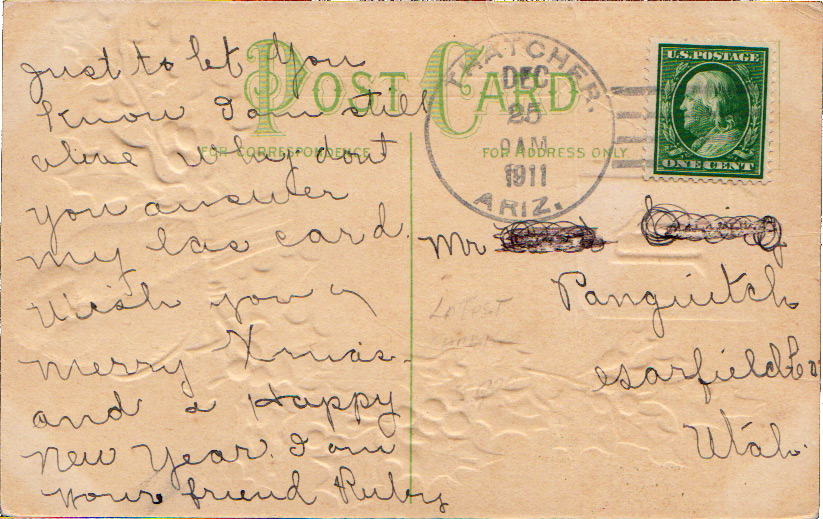 POST CARD
FOR CORRESPONDENCE
FOR ADDRESS ONLY
Just to let You
know I am still
alive Why dont
you answer
my las card.
Wish you a
merry Xmas
and a Happy
New Year. I am
your friend Ruby
THATCHER.
DEC
25
9AM
1911
ARIZ.
U.S. POSTAGE
ONE CENT
Mr
Panguitch
Garfield Co
Utah.
LATEST